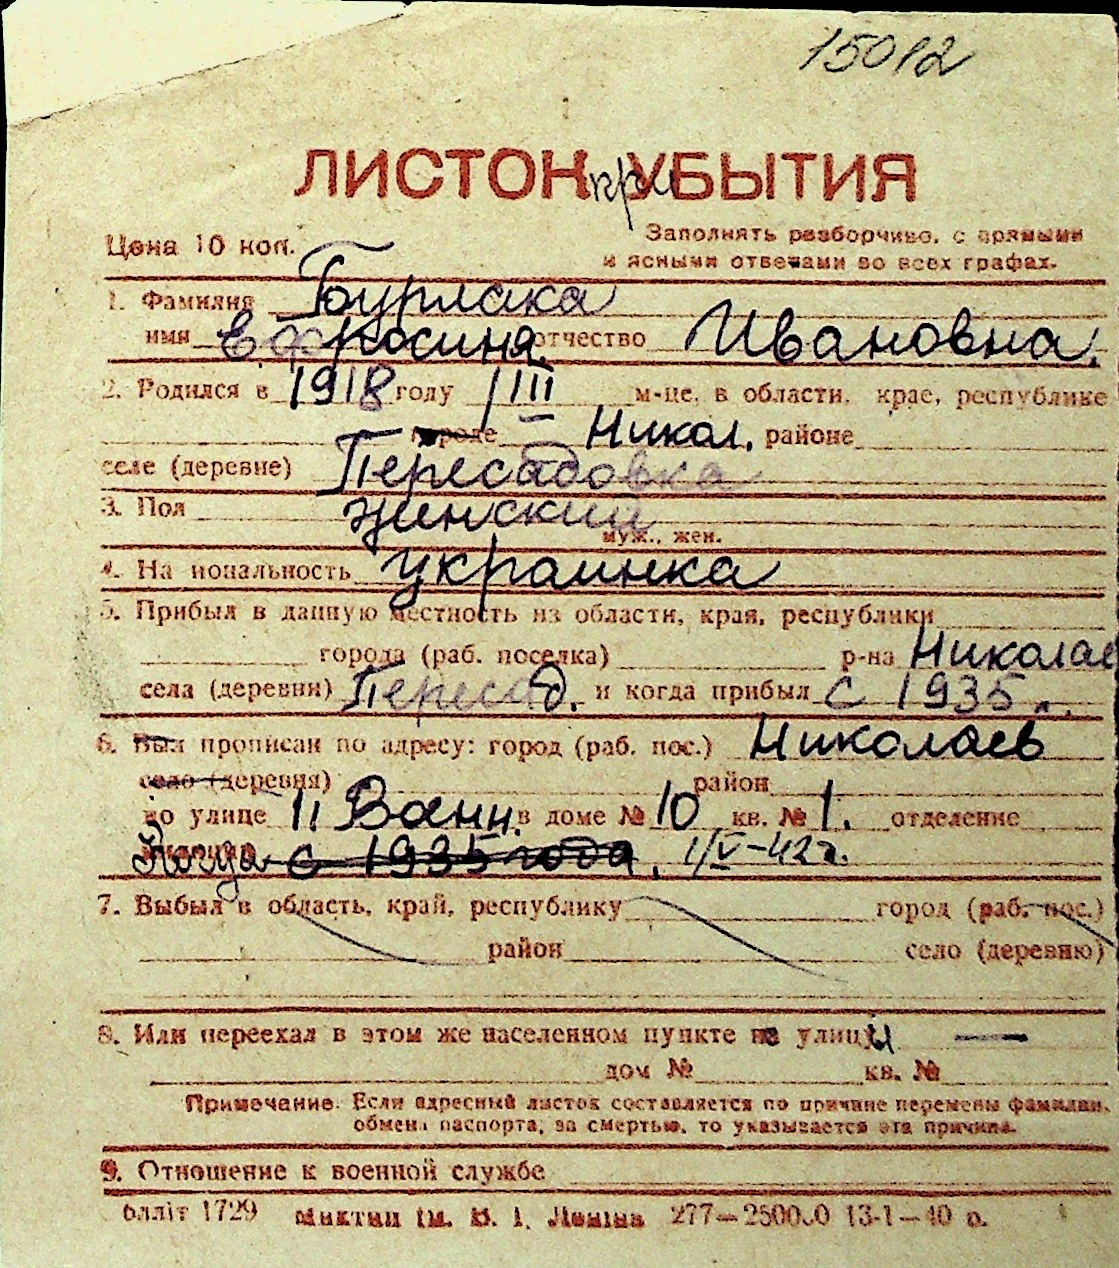 15012
ЛИСТОК при УБЫТИЯ
Цена 10 коп.
Заполнять разборчиво, с прямыми
и ясными ответами во всех графах.
1. Фамилия Бурлака
имя Ефросиня отчество Ивановна.
2. Родился в 1918 году 1/III м-це, в области, крае, республике
городе Никол. районе
селе (деревне) Пересадовка
3. Пол женский
муж., жен.
4. На иональность украинка
5. Прибыл в данную местность из области, края, республики
города (раб. поселка) р-на Николаев
села (деревни) Пересад. и когда прибыл с 1935 г.
6. Был прописан по адресу: город (раб. пос.) Николаев
село (деревня) район
по улице 11 Воен. в доме № 10 кв. № 1. отделение
Когда с 1935 года. 1/V-42 г.
7. Выбыл в область, край, республику город (раб. пос.)
район село (деревню)
8. Или переехал в этом же населенном пункте на улицу —
дом № кв. №
Примечание. Если адресный листок составляется по причине перемены фамилии,
обмена паспорта, за смертью, то указывается эта причина.
9. Отношение к военной службе
блліт 1729 ім. В. І. Леніна 277—250000 13-1—40 р.